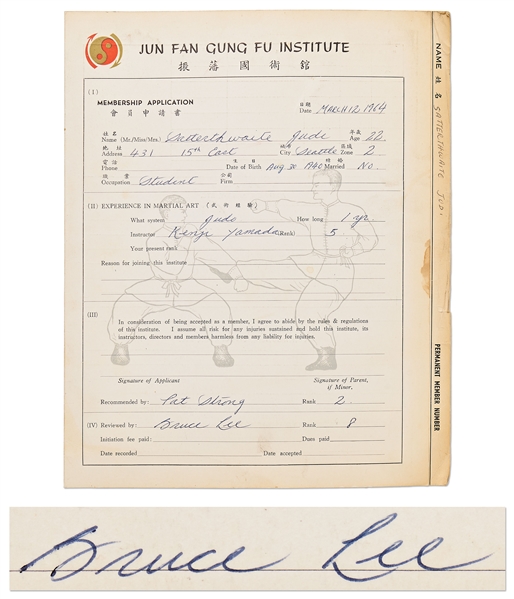 JUN FAN GUNG FU INSTITUTE
振藩國術館
(I)
MEMBERSHIP APPLICATION
會員申請書
日期
Date MARCH 12 1964
姓名 年歲
Name (Mr./Miss/Mrs.) Satterthwaite Judi Age 22
地址 城市 區域
Address 431 15th East City Seattle Zone 2
電話 生日 婚姻
Phone Date of Birth Aug 30 1940 Married No.
職業 公司
Occupation Student Firm
(II) EXPERIENCE IN MARTIAL ART (武術經驗)
What system Judo How long 1 yr
Instructor Kenji Yamada (Rank) 5
Your present rank
Reason for joining this institute
(III)
In consideration of being accepted as a member, I agree to abide by the rules & regulations
of this institute. I assume all risk for any injuries sustained and hold this institute, its
instructors, directors and members harmless from any liability for injuries.
Signature of Applicant Signature of Parent,
if Minor.
Recommended by: Pat Strong Rank 2.
(IV) Reviewed by: Bruce Lee Rank 8
Initiation fee paid: Dues paid:
Date recorded Date accepted
NAME 姓名 SATTERTHWAITE JUDI
PERMANENT MEMBER NUMBER
Bruce Lee